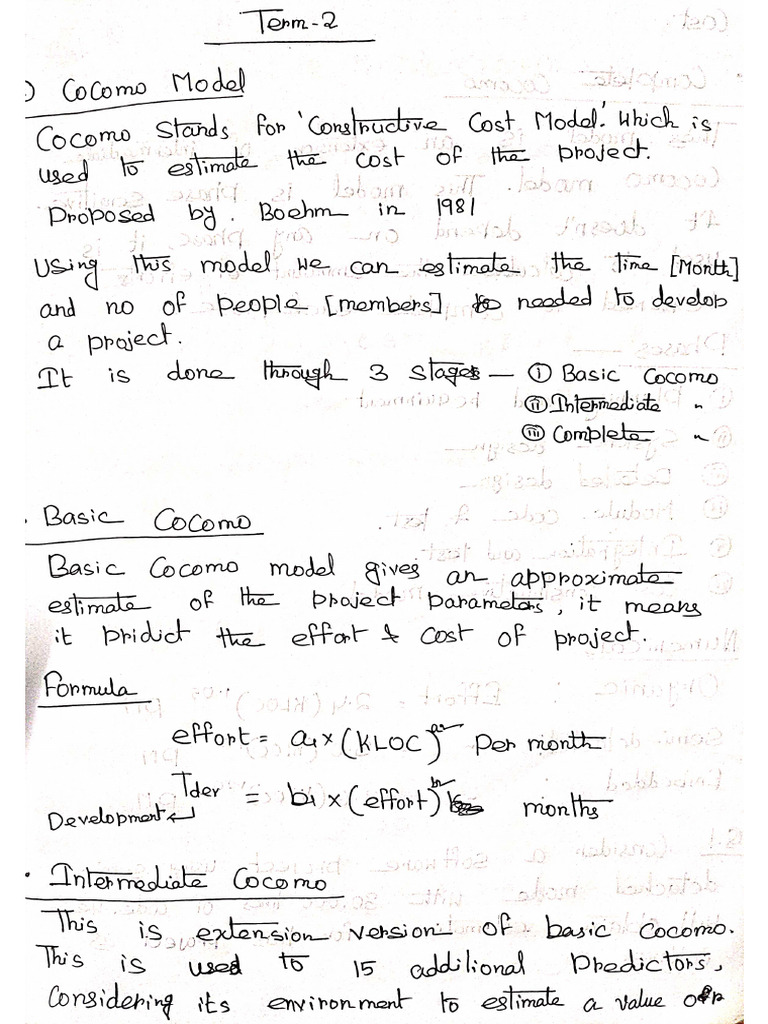 Term-2
) COCOMO Model
COCOMO Stands for 'Constructive Cost Model'. Which is
used to estimate the cost of the project.
Proposed by. Boehm in 1981
Using this model we can estimate the time [Month]
and no of people [members] needed to develop
a project.
It is done through 3 stages — (i) Basic Cocomo
(ii) Intermediate "
(iii) Complete "
· Basic COCOMO
Basic Cocomo model gives an approximate
estimate of the project parameters, it means
it pridict the effort & cost of project.
Formula
effort = a₁ × (KLOC)^a₂ Per month
Tdev = b₁ × (effort)^b₂ months
Development ↵
· Intermediate Cocomo
This is extension version of basic Cocomo.
This is used to 15 additional Predictors,
Considering its environment to estimate a value of